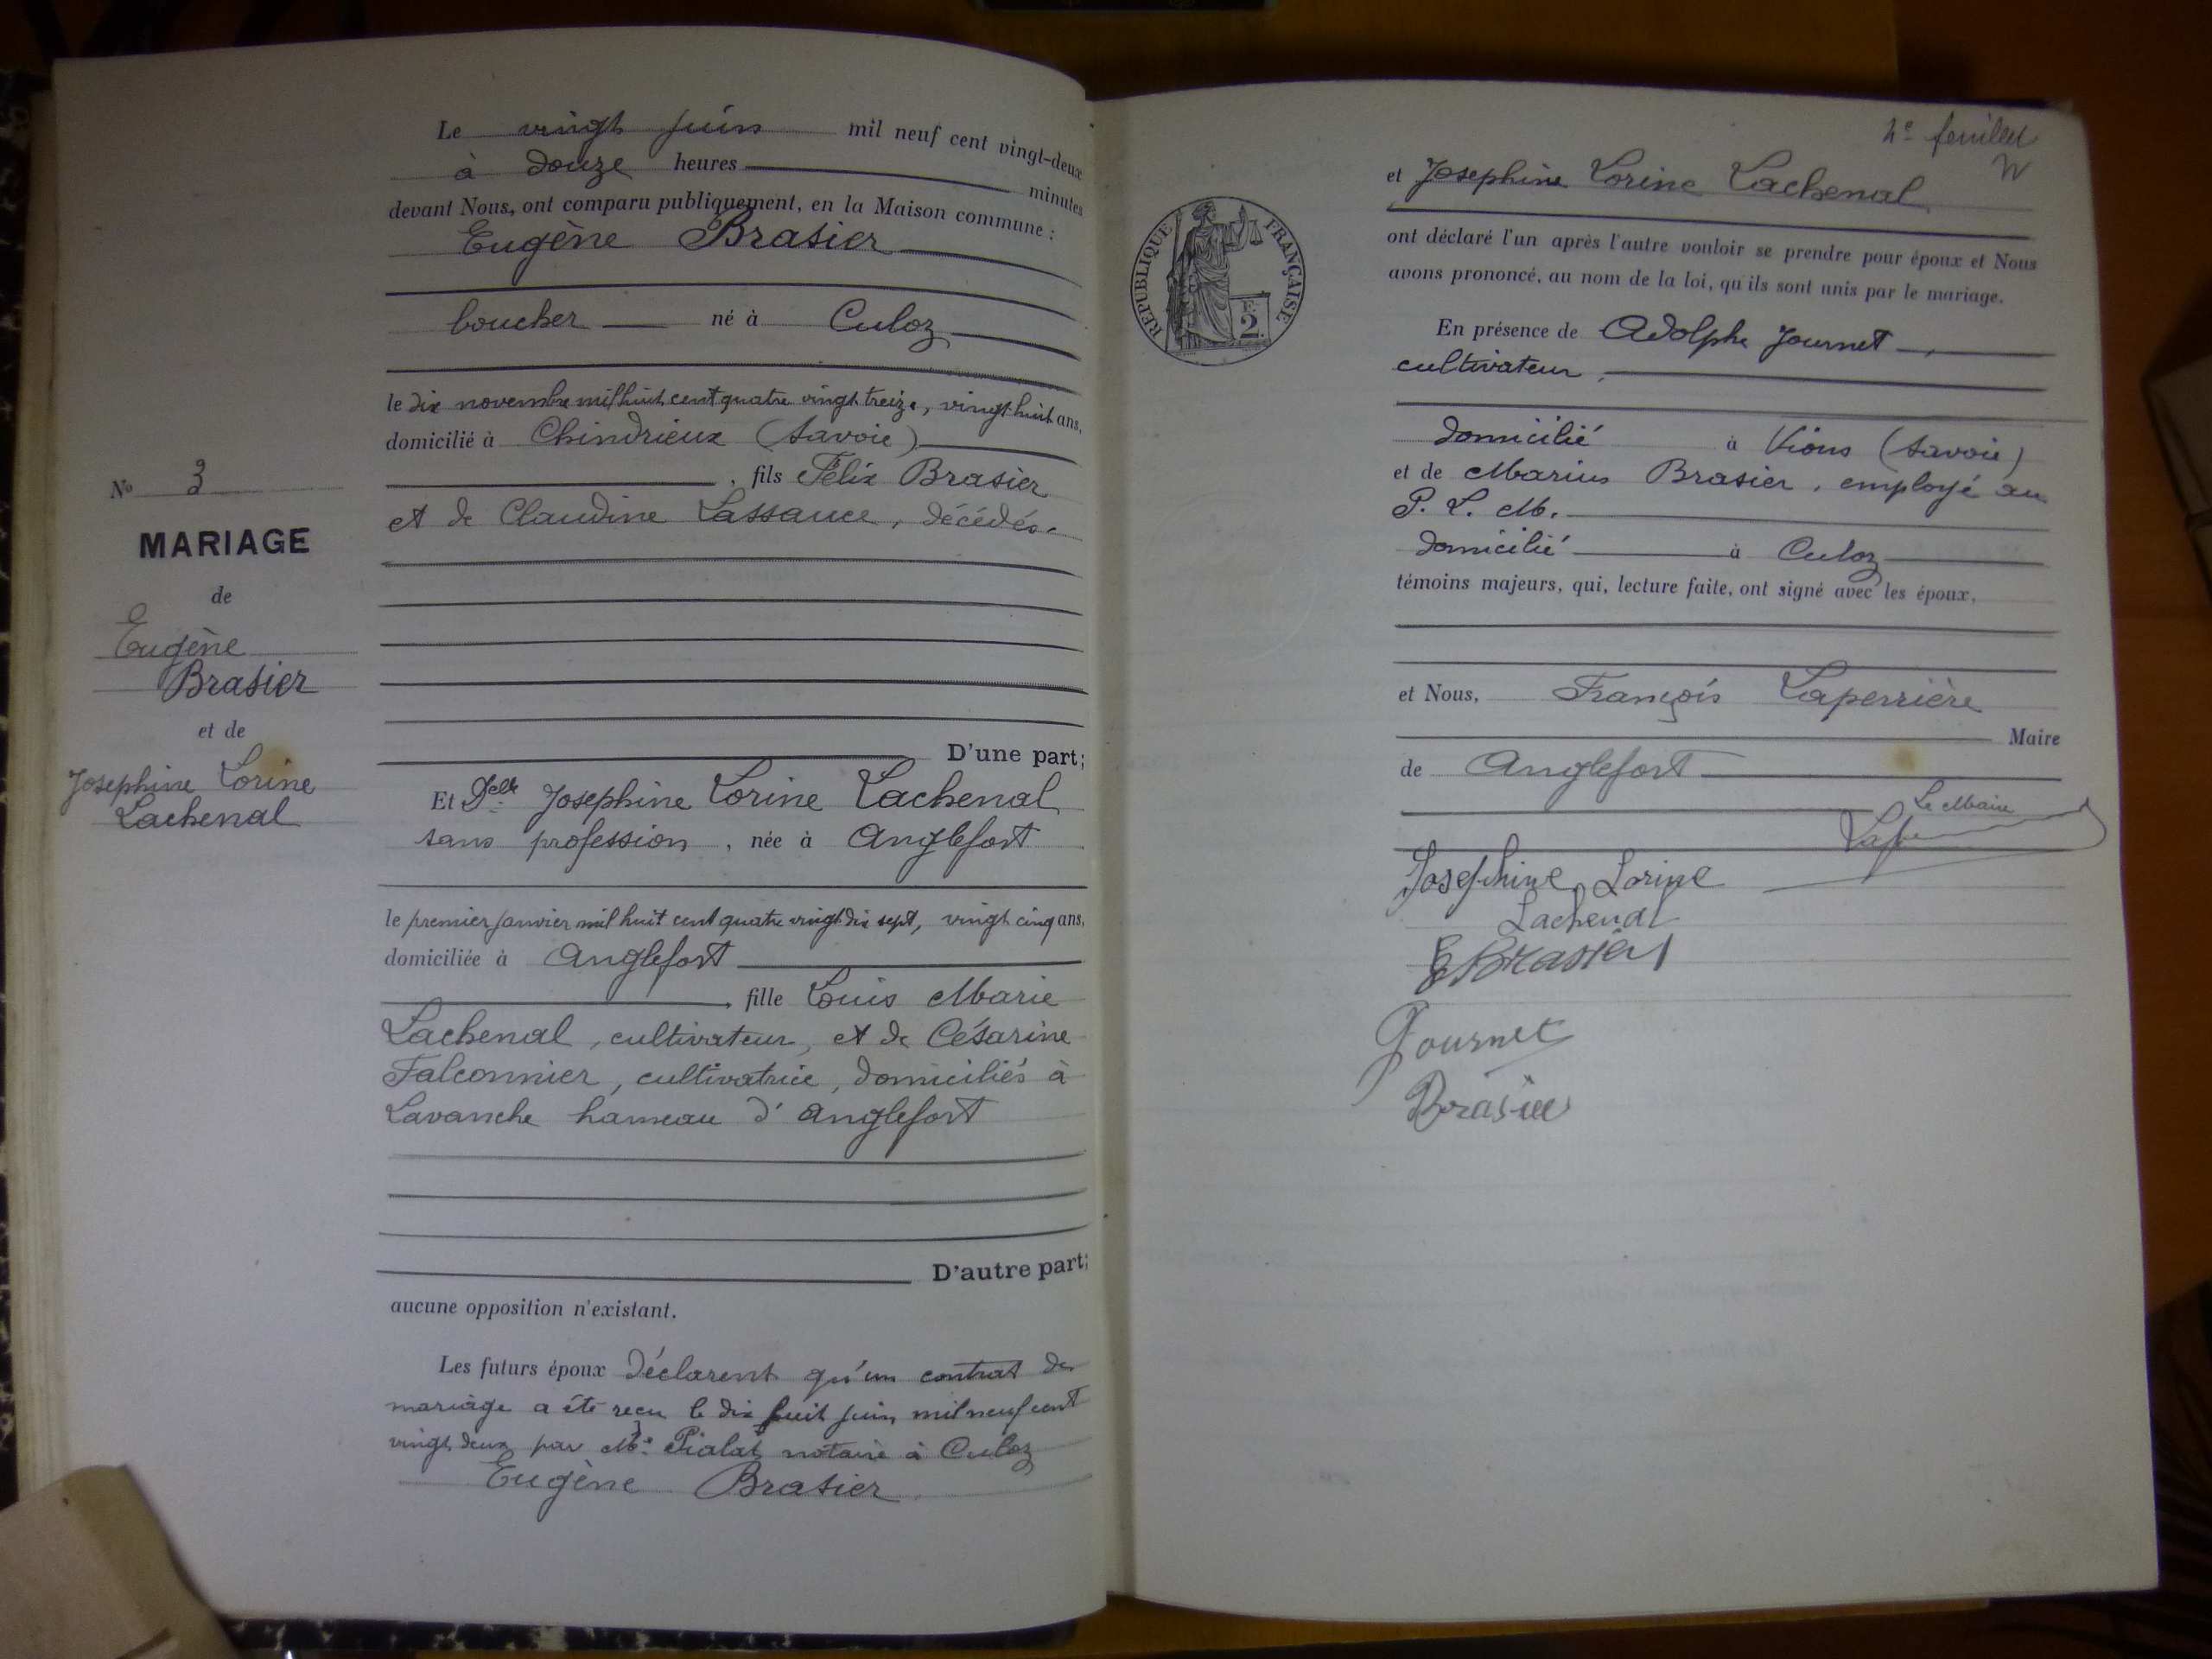 Le vingt juin mil neuf cent vingt-deux
à douze heures minutes
devant Nous, ont comparu publiquement, en la Maison commune :
Eugène Brasier
boucher né à Culoz
le dix novembre mil huit cent quatre vingt treize, vingt huit ans,
domicilié à Chindrieux (Savoie)
, fils Félix Brasier
et de Claudine Lassauce, décédés.
No 3
MARIAGE
de
Eugène
Brasier
et de
Josephine Lorine
Lachenal
D'une part;
Et Delle Josephine Lorine Lachenal
sans profession, née à Anglefort
le premier janvier mil huit cent quatre vingt dix sept, vingt cinq ans,
domiciliée à Anglefort
, fille Louis Marie
Lachenal, cultivateur, et de Césarine
Falconnier, cultivatrice, domiciliés à
Lavanche hameau d'Anglefort
D'autre part;
aucune opposition n'existant.
Les futurs époux déclarent qu'un contrat de
mariage a été reçu le dix huit juin mil neuf cent
vingt deux par Me Pialat notaire à Culoz
Eugène Brasier
2e feuillet
REPUBLIQUE FRANÇAISE
F. 2.
et Josephine Lorine Lachenal
ont déclaré l'un après l'autre vouloir se prendre pour époux et Nous
avons prononcé, au nom de la loi, qu'ils sont unis par le mariage.
En présence de Adolphe Journet,
cultivateur,
domicilié à Vions (Savoie)
et de Marius Brasier, employé au
P. L. M.
domicilié à Culoz
témoins majeurs, qui, lecture faite, ont signé avec les époux,
et Nous, François Laperrière
Maire
de Anglefort
Le Maire
Josephine Lorine
Lachenal
E Brasier
Journet
Brasier